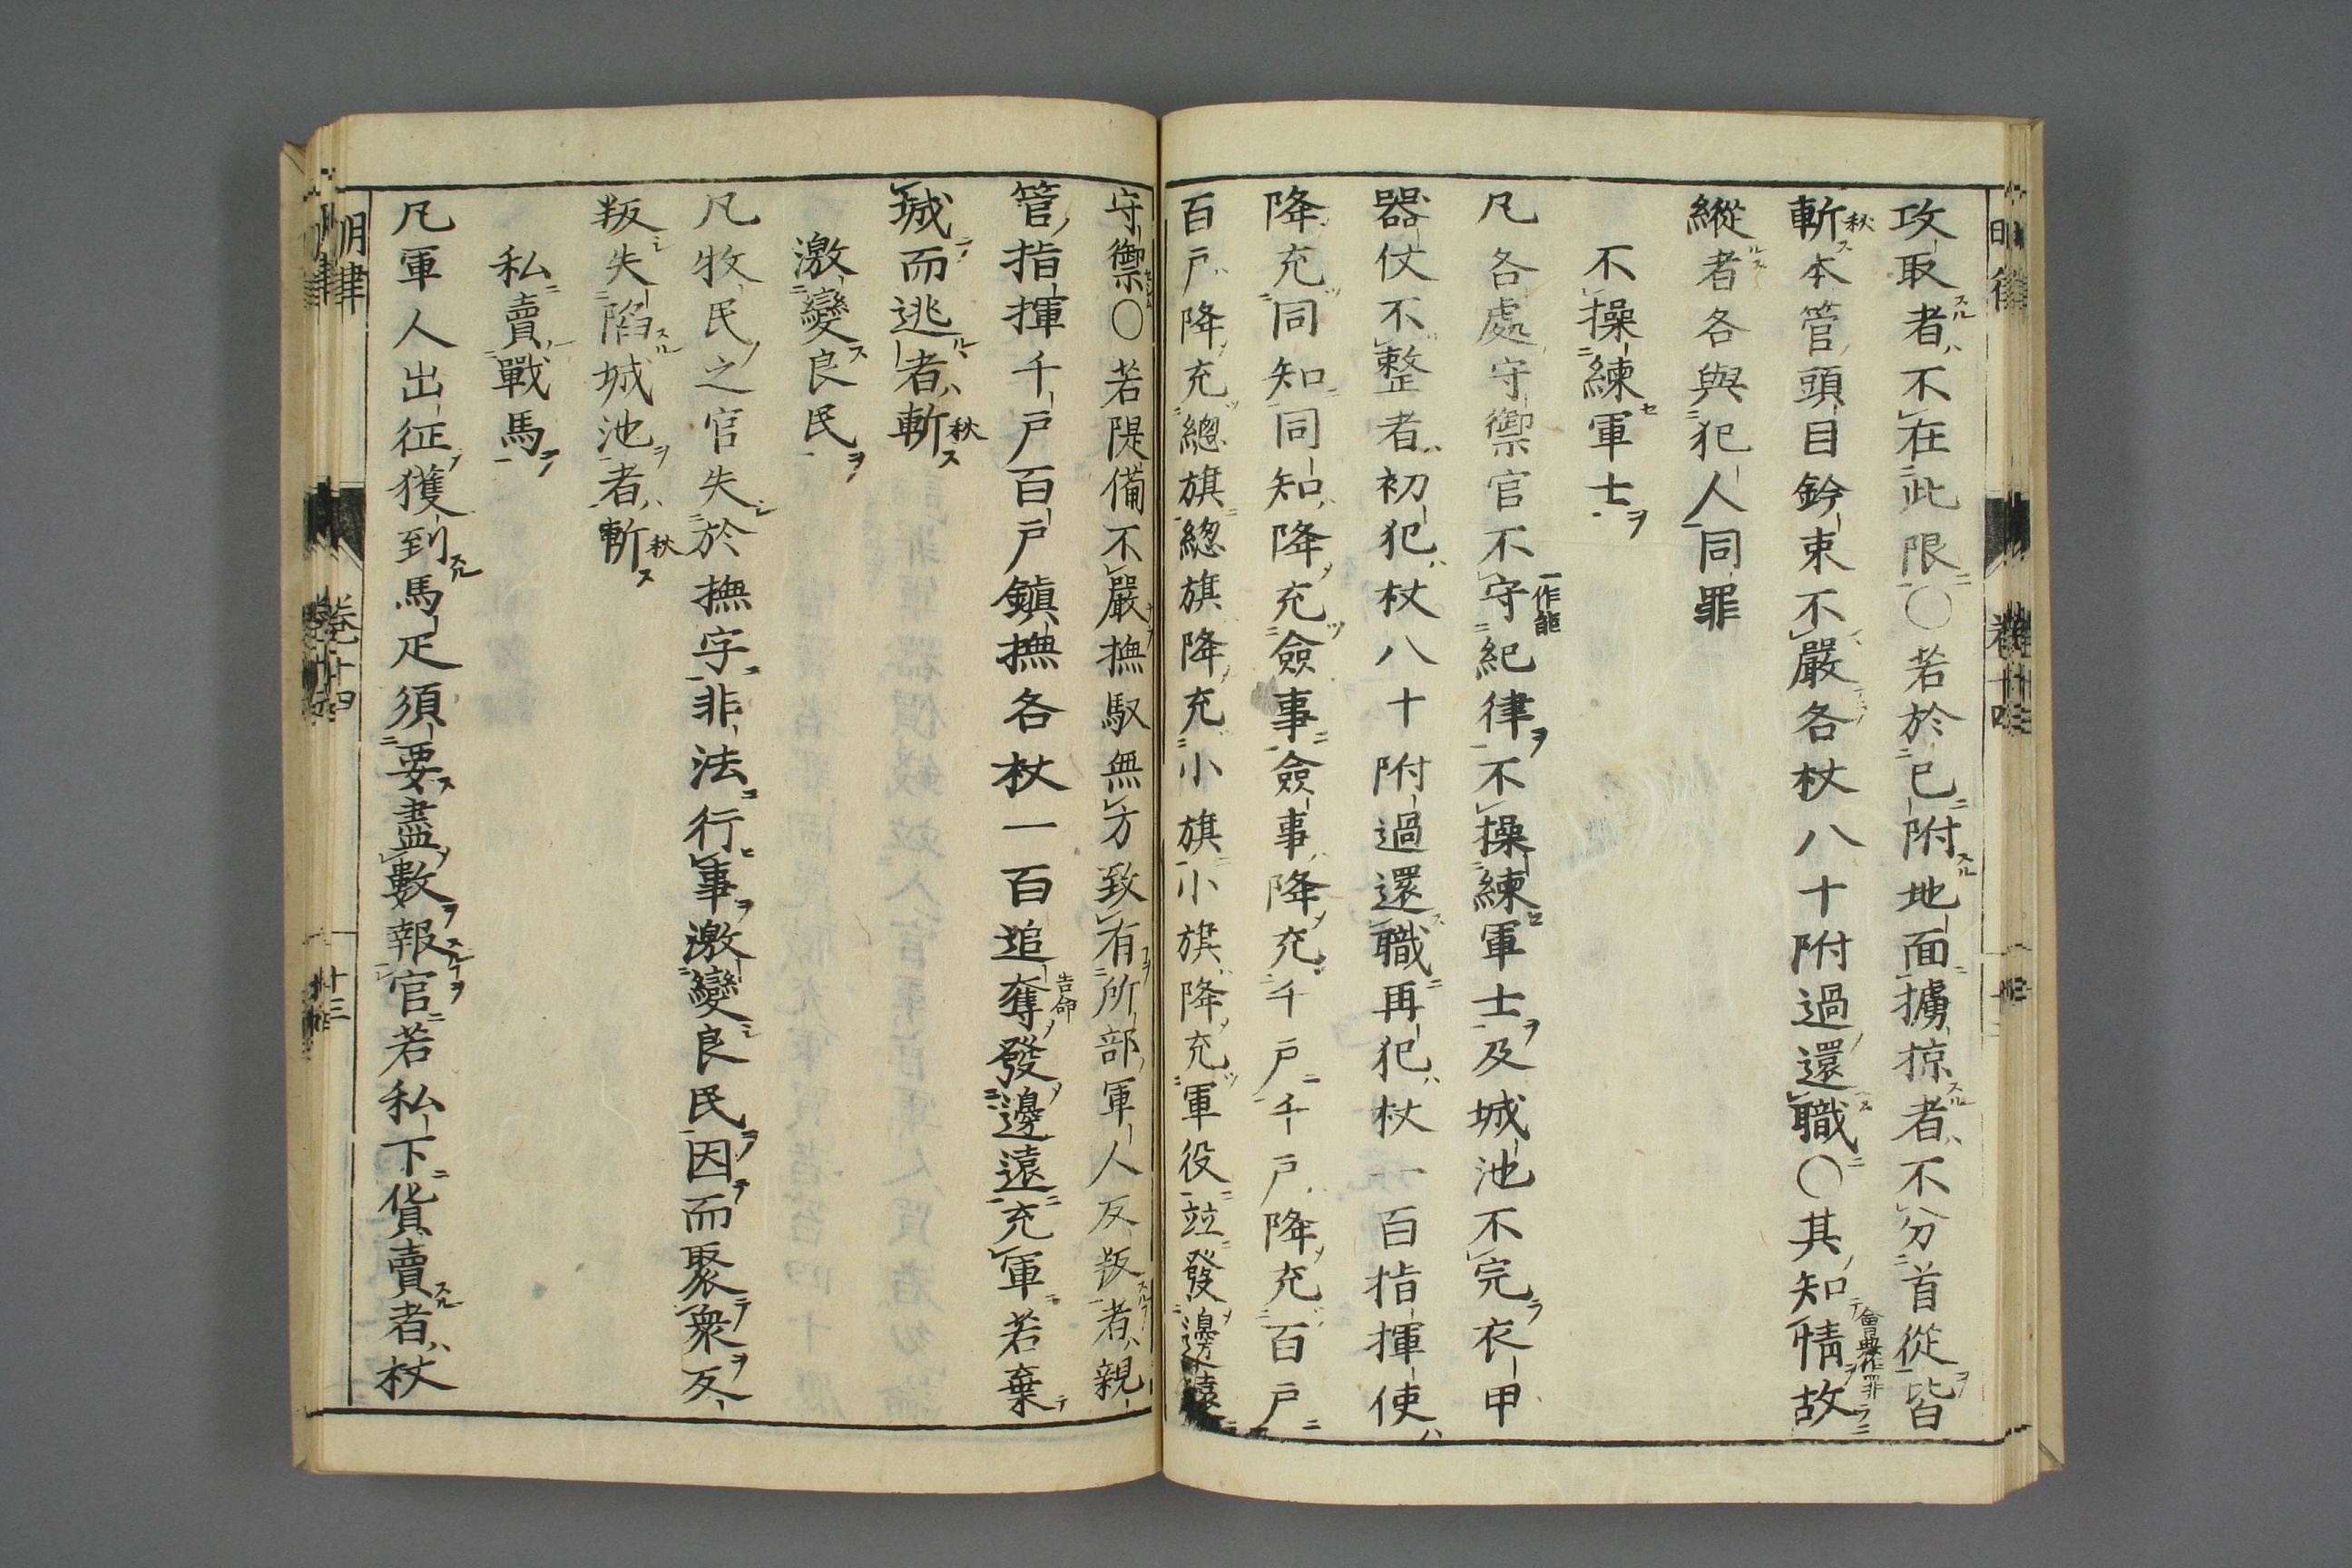 攻取者不在此限○若於已附地面擄掠者不分首從皆
斬秋本管頭目鈐束不嚴各杖八十附過還職○其知情會典作罪故
縱者各與犯人同罪
不操練軍士
凡各處守禦官不守一作能紀律不操練軍士及城池不完衣甲
器仗不整者初犯杖八十附過還職再犯杖一百指揮使
降充同知同知降充僉事僉事降充千戶千戶降充百戶
百戶降充總旗總旗降充小旗小旗降充軍役竝發邊遠
守禦○若隄備不嚴撫馭無方致有所部軍人反叛者親
管指揮千戶百戶鎮撫各杖一百追奪告命發邊遠充軍若棄
城而逃者斬秋
激變良民
凡牧民之官失於撫字非法行事激變良民因而聚衆反
叛失陷城池者斬秋
私賣戰馬
凡軍人出征獲到馬疋須要盡數報官若私下貨賣者杖
明律 卷十四 十三